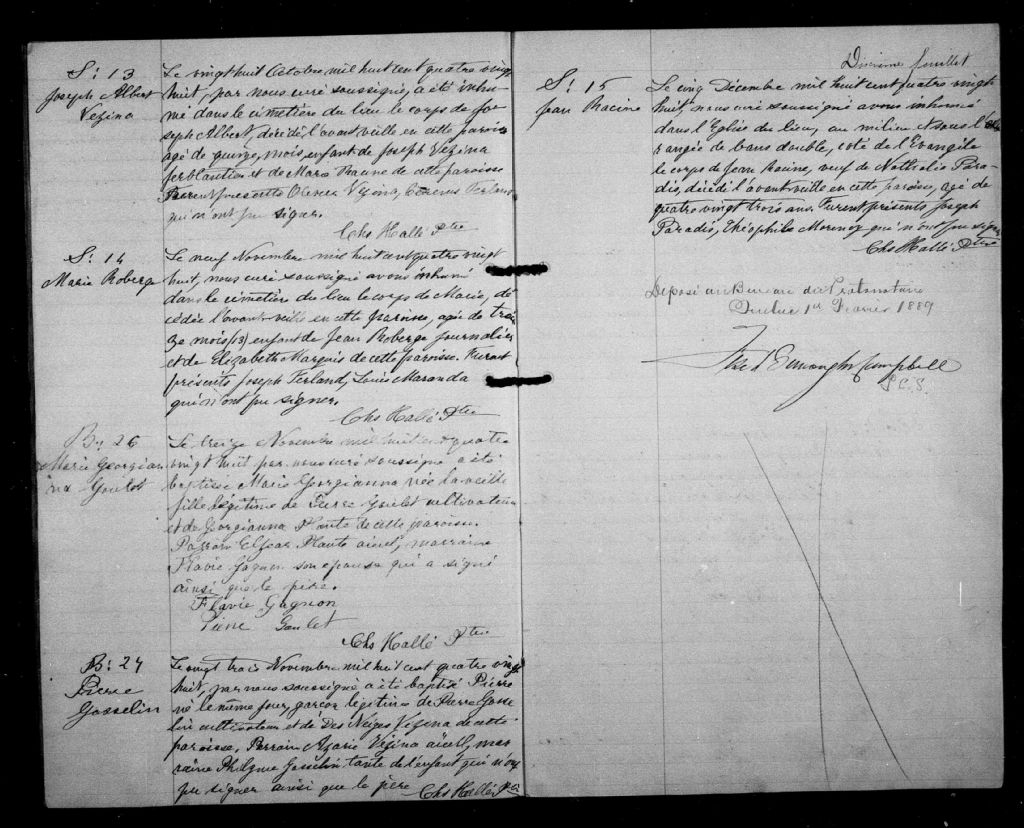 S: 13
Joseph Albert
Vezina
Le vingt huit Octobre mil huit cent quatre vingt
huit, par nous curé soussigné, a été inhu-
mé dans le cimetière du lieu le corps de Jo-
seph Albert, décédé l'avant veille en cette paroisse
agé de quinze mois, enfant de Joseph Vézina
ferblantier et de Marie Racine de cette paroisse
Furent présents Vézina, Ferland
qui n'ont pu signer.
Chs Hallé Ptre
S: 14
Marie Roberge
Le neuf Novembre mil huit cent quatre vingt
huit, nous curé soussigné avons inhumé
dans le cimetière du lieu le corps de Marie, dé-
cédée l'avant veille en cette paroisse, agée de trei
ze mois (13) enfant de Jean Roberge journalier
et de Elizabeth Marquis de cette paroisse. Furent
présents Joseph Ferland, Louis Maranda
qui n'ont pu signer.
Chs Hallé Ptre
B: 26
Marie Georgian
na Goulet
Le treize Novembre mil huit cent quatre
vingt huit par nous curé soussigné a été
baptisée Marie Georgianna née la veille
fille légitime de Pierre Goulet cultivateur
et de Georgianna Plante de cette paroisse.
Parrain Elzear Plante aïeul, marraine
Flavie Gagnon son épouse qui a signé
ainsi que le père.
Flavie Gagnon
Pierre Goulet
Chs Hallé Ptre
B: 27
Pierre
Gosselin
Le vingt trois Novembre mil huit cent quatre vingt
huit, par nous soussigné a été baptisé Pierre
né le même jour, garçon légitime de Pierre Gosse
lin cultivateur et de Des Neiges Vézina de cette
paroisse, Parrain Azarie Vézina aïeul, mar
raine Gosselin tante de l'enfant qui n'ont
pu signer ainsi que le père Chs Hallé Ptre
feuillet
S: 15
Jean Racine
Le cinq Décembre mil huit cent quatre vingt
huit, nous curé soussigné avons inhumé
dans l'Eglise du lieu, au milieu et sous la
rangée de bancs double, coté de l'Evangile
le corps de Jean Racine, veuf de Nathalie Para-
dis, décédé l'avant veille en cette paroisse, agé de
quatre vingt trois ans. Furent présents Joseph
Paradis, Théophile Morency qui n'ont pu signer
Chs Hallé Ptre
Déposé au Bureau du Protonotaire
Québec 1er Février 1889
Campbell